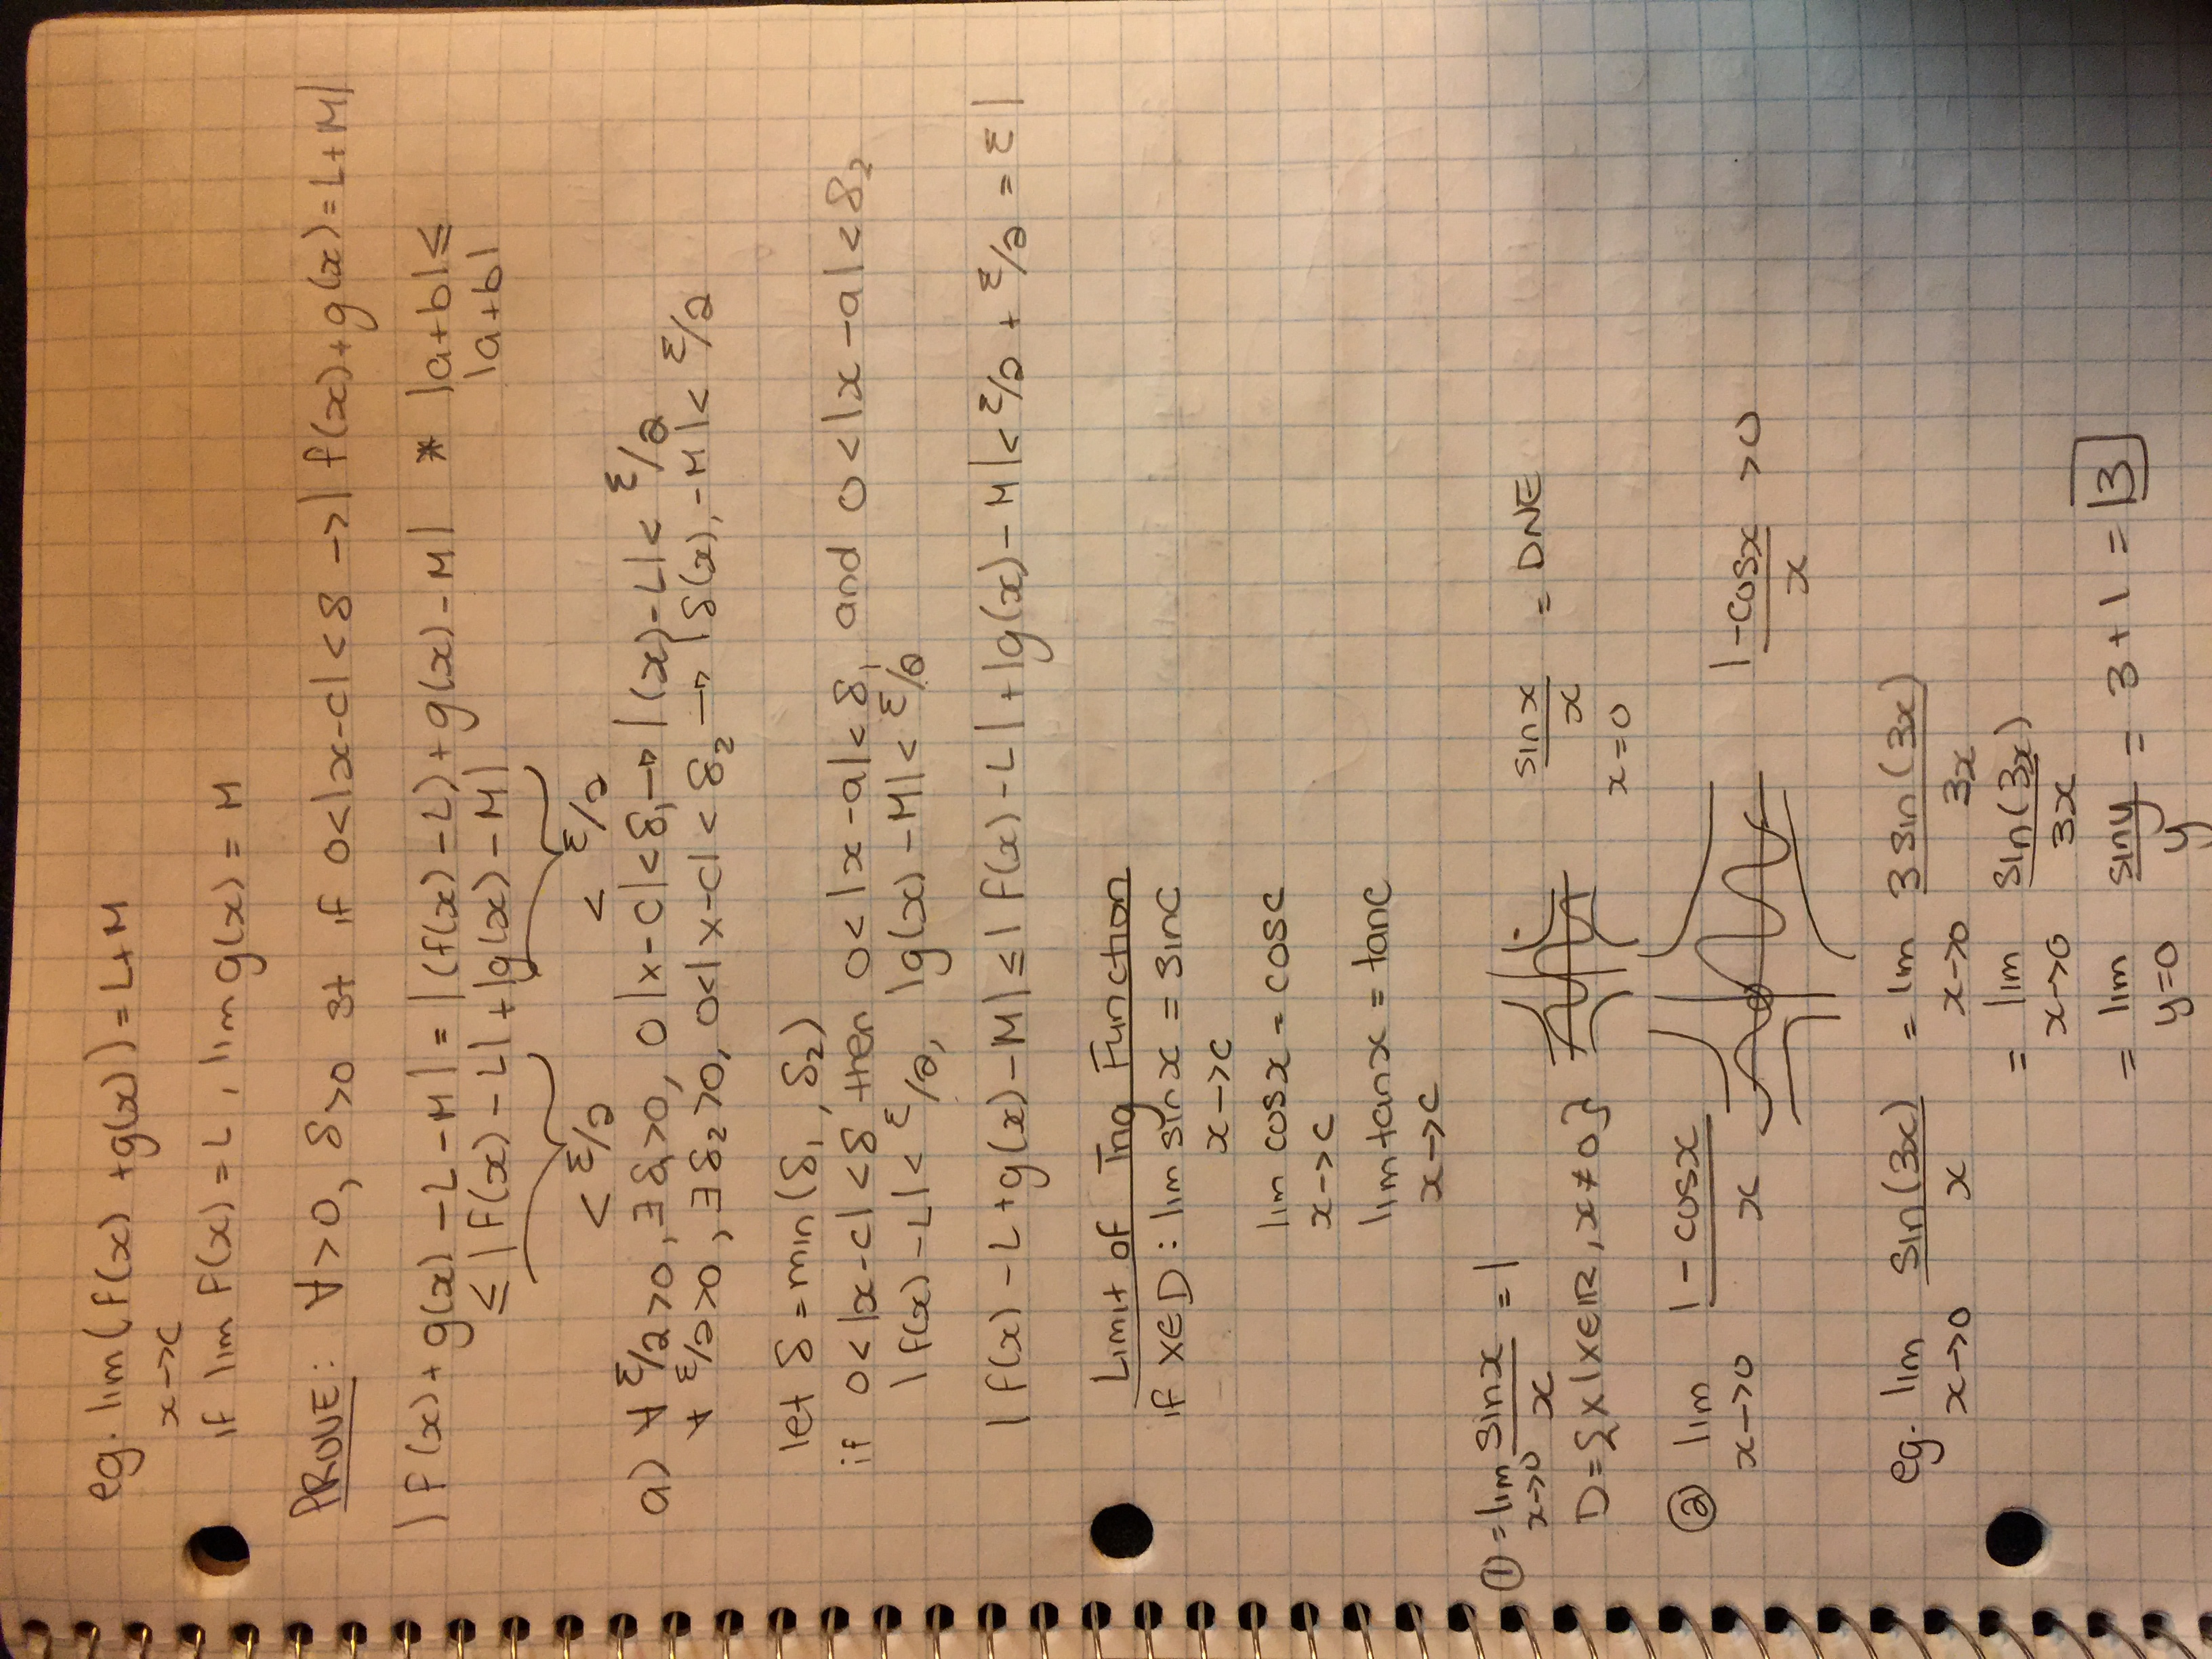 eg. lim (f(x) + g(x)) = L+M
x→c
if lim f(x) = L, lim g(x) = M
PROVE: ∀ > 0, δ > 0 st if 0<|x-c| < δ → | f(x)+g(x) = L+M|
|f(x) + g(x) - L - M| = |(f(x) - L) + g(x) - M| * |a+b| ≤
≤ |f(x) - L| + |g(x) - M| |a+b|
< ε/2 < ε/2
a) ∀ ε/2 > 0, ∃ δ₁ > 0, 0 |x-c| < δ₁ → |(x) - L| < ε/2
∀ ε/2 > 0, ∃ δ₂ > 0, 0<|x-c| < δ₂ → |δ(x), -M| < ε/2
let δ = min (δ₁, δ₂)
if 0 < |x-c| < δ then 0 < |x-a| < δ₁ and 0 < |x-a| < δ₂
|f(x) - L| < ε/2, |g(x) - M| < ε/2
|f(x) - L + g(x) - M| ≤ |f(x) - L| + |g(x) - M| < ε/2 + ε/2 = ε|
Limit of Trig Function
if x∈D : lim sin x = sinc
x→c
lim cosx = cosc
x→c
lim tanx = tanc
x→c
① = lim sinx/x = 1 sinx/x = DNE
x→0 x=0
D = {x | x∈ℝ, x≠0}
② lim 1 - cosx/x 1-cosx/x >0
x→0
eg. lim sin(3x)/x = lim 3 sin(3x)/3x
x→0 x→0
= lim sin(3x)/3x
x→0
= lim siny/y = 3+1 = 3
y=0